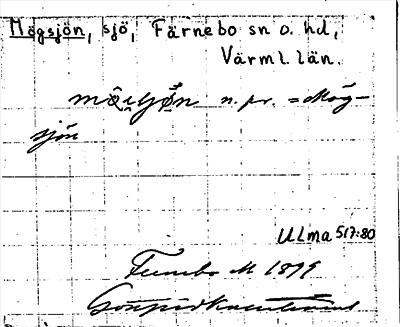 Mögsjön, sjö, Färnebo sn o. hd,
Värml. län.
n. pr. = Mög-
sjön
ULma 517:80
Fernebo M 1899